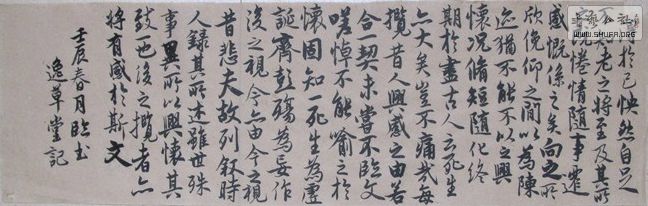 得於己怏然自足
不知老之將至及其所
之既惓情隨事遷
感慨係之矣向之所
欣俛仰之間以為陳
迹猶不能不以之興
懷況脩短隨化終
期於盡古人云死生
亦大矣豈不痛哉每
攬昔人興感之由若
合一契未嘗不臨文
嗟悼不能喻之於
懷固知一死生為虛
誕齊彭殤為妄作
後之視今亦由今之視
昔悲夫故列叙時
人錄其所述雖世殊
事異所以興懷其
致一也後之攬者亦
將有感於斯文
壬辰春月臨書
逸草堂記
WWW.SHUFA.ORG